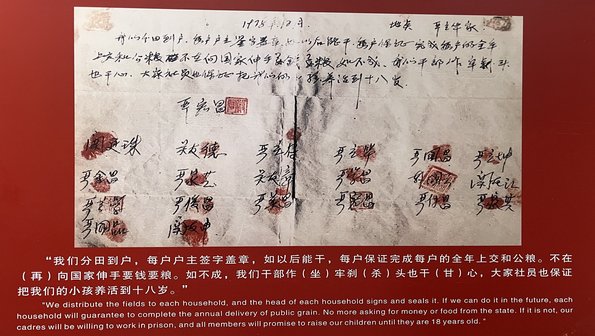 1978年12月 地点 严立华家
我们分田到户,每户户主签字盖章,如以后能干,每户保证完成每户的全年
上交和公粮 不在向国家伸手要钱要粮,如不成,我们干部作牢刹头
也干心,大家社员也保证把我们的小孩养活到十八岁
严宏昌
关廷珠 关友德 严立付 严立华 严国昌 严立坤
严金昌 严家芝 关友章 严学昌 韩国云 关友江
严立学 严俊昌 严美昌 严宏昌 严付昌 严家其
严国品 关友申
“我们分田到户,每户户主签字盖章,如以后能干,每户保证完成每户的全年上交和公粮。不在
(再)向国家伸手要钱要粮。如不成,我们干部作(坐)牢刹(杀)头也干(甘)心,大家社员也保证
把我们的小孩养活到十八岁。”
"We distribute the fields to each household, and the head of each household signs and seals it. If we can do it in the future, each
household will guarantee to complete the annual delivery of public grain. No more asking for money or food from the state. If it is not, our
cadres will be willing to work in prison, and all members will promise to raise our children until they are 18 years old."